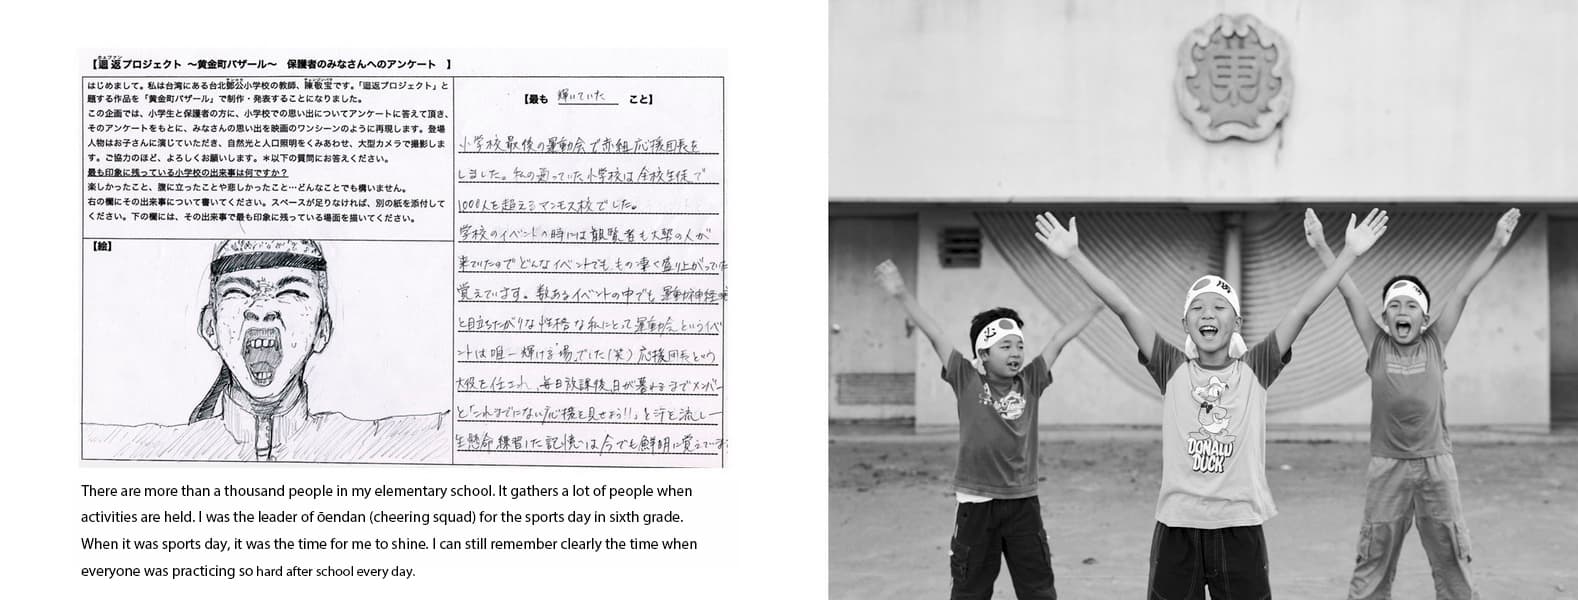 【迴返プロジェクト ～黄金町バザール～　保護者のみなさんへのアンケート　】
はじめまして。私は台湾にある台北鄭公小学校の教師、陳敬宝です。「迴返プロジェクト」と
題する作品を「黄金町バザール」で制作・発表することになりました。
この企画では、小学生と保護者の方に、小学校での思い出についてアンケートに答えて頂き、
そのアンケートをもとに、みなさんの思い出を映画のワンシーンのように再現します。登場
人物はお子さんに演じていただき、自然光と人口照明をくみあわせ、大型カメラで撮影しま
す。ご協力のほど、よろしくお願いします。＊以下の質問にお答えください。
最も印象に残っている小学校の出来事は何ですか？
楽しかったこと、腹に立ったことや悲しかったこと…どんなことでも構いません。
右の欄にその出来事について書いてください。スペースが足りなければ、別の紙を添付して
ください。下の欄には、その出来事で最も印象に残っている場面を描いてください。
【絵】
【最も　輝いていた　こと】
小学校最後の運動会で赤組応援団長を
しました。私の通っていた小学校は全校生徒で
1000人を超えるマンモス校でした。
学校のイベントの時には観覧者も大勢の人が
来ていたのでどんなイベントでも、もの凄く盛り上がっていた
覚えています。数あるイベントの中でも運動神経
と目立ちたがりな性格な私にとって運動会というイベ
ントは唯一輝ける場でした(笑)応援団長という
大役を任され、毎日放課後、日が暮れるまでメンバー
と「これまでにない応援を見せよう!!」と汗を流し一
生懸命練習した記憶は今でも鮮明に覚えています
There are more than a thousand people in my elementary school. It gathers a lot of people when
activities are held. I was the leader of ōendan (cheering squad) for the sports day in sixth grade.
When it was sports day, it was the time for me to shine. I can still remember clearly the time when
everyone was practicing so hard after school every day.
DONALD
DUCK